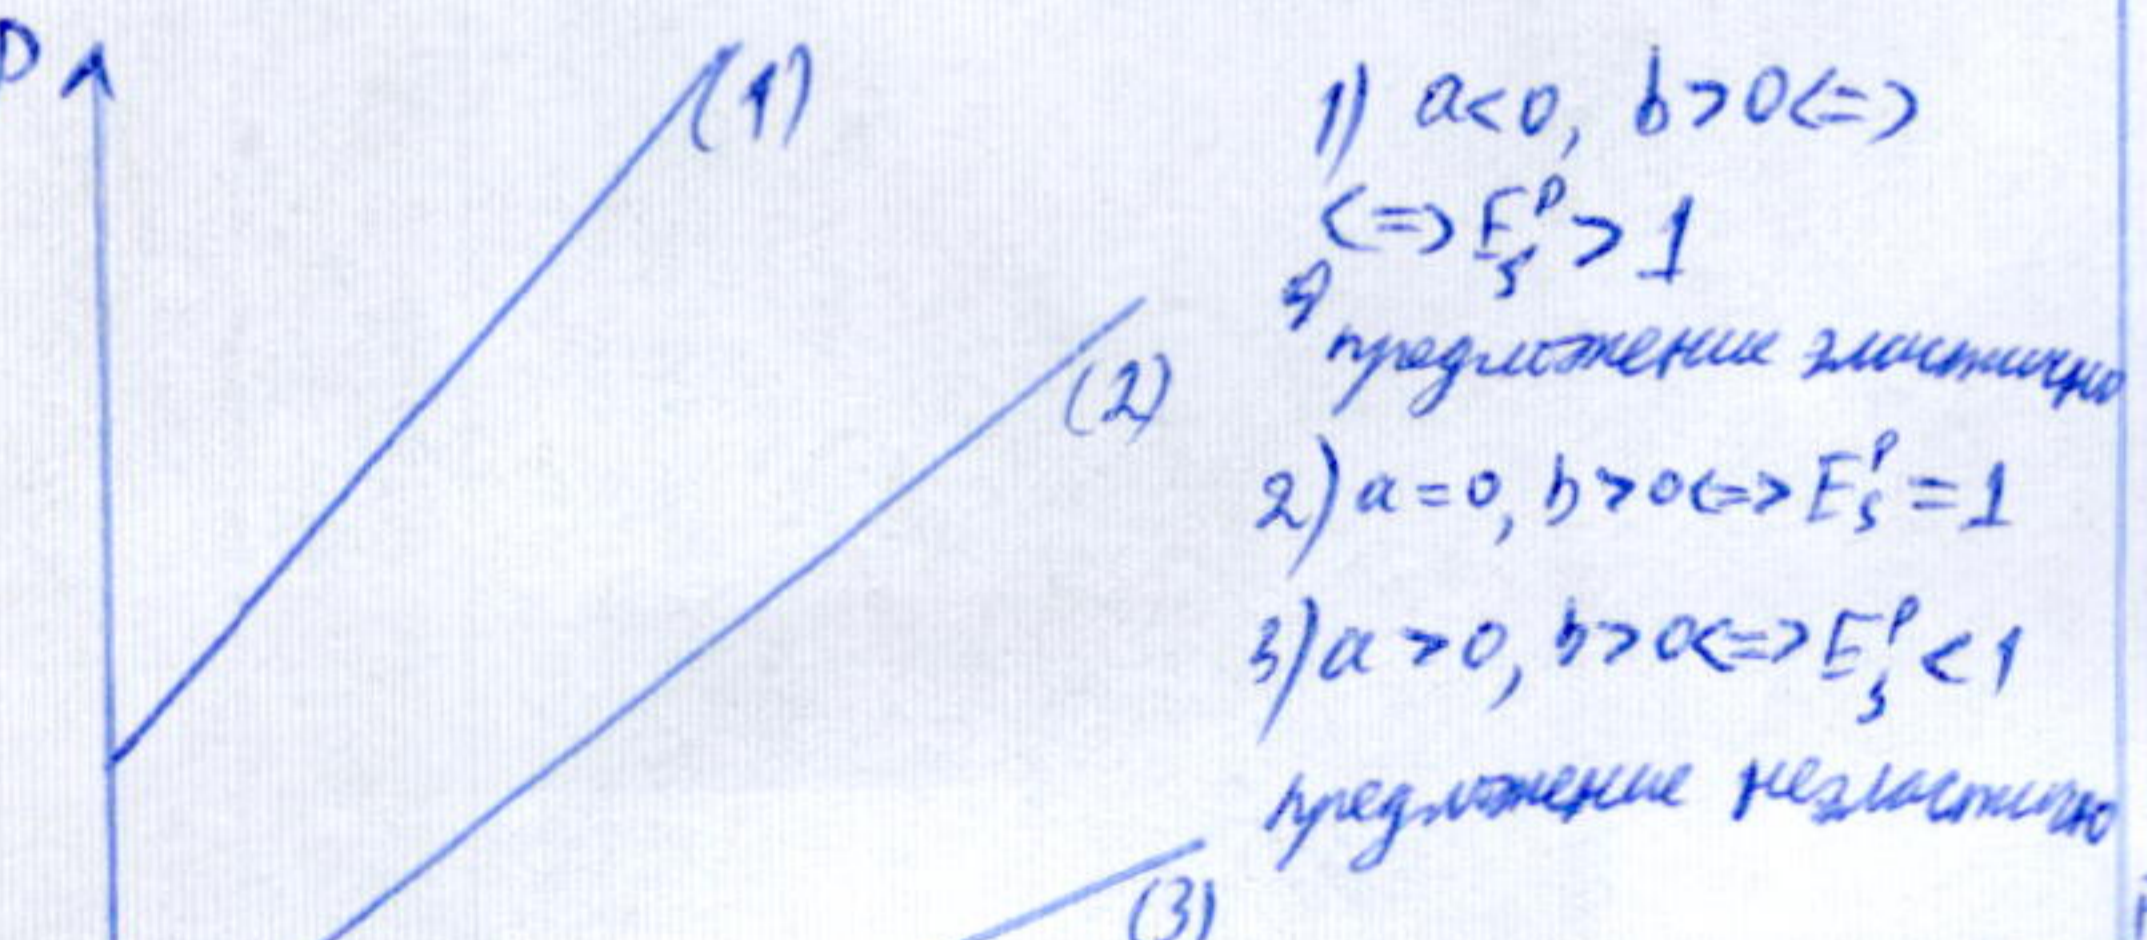 P
(1)
(2)
(3)
1) a<0, b>0<=>
<=> E_s^P > 1
предложение эластично
2) a=0, b>0<=> E_s^P = 1
3) a>0, b>0<=> E_s^P < 1
предложение неэластично